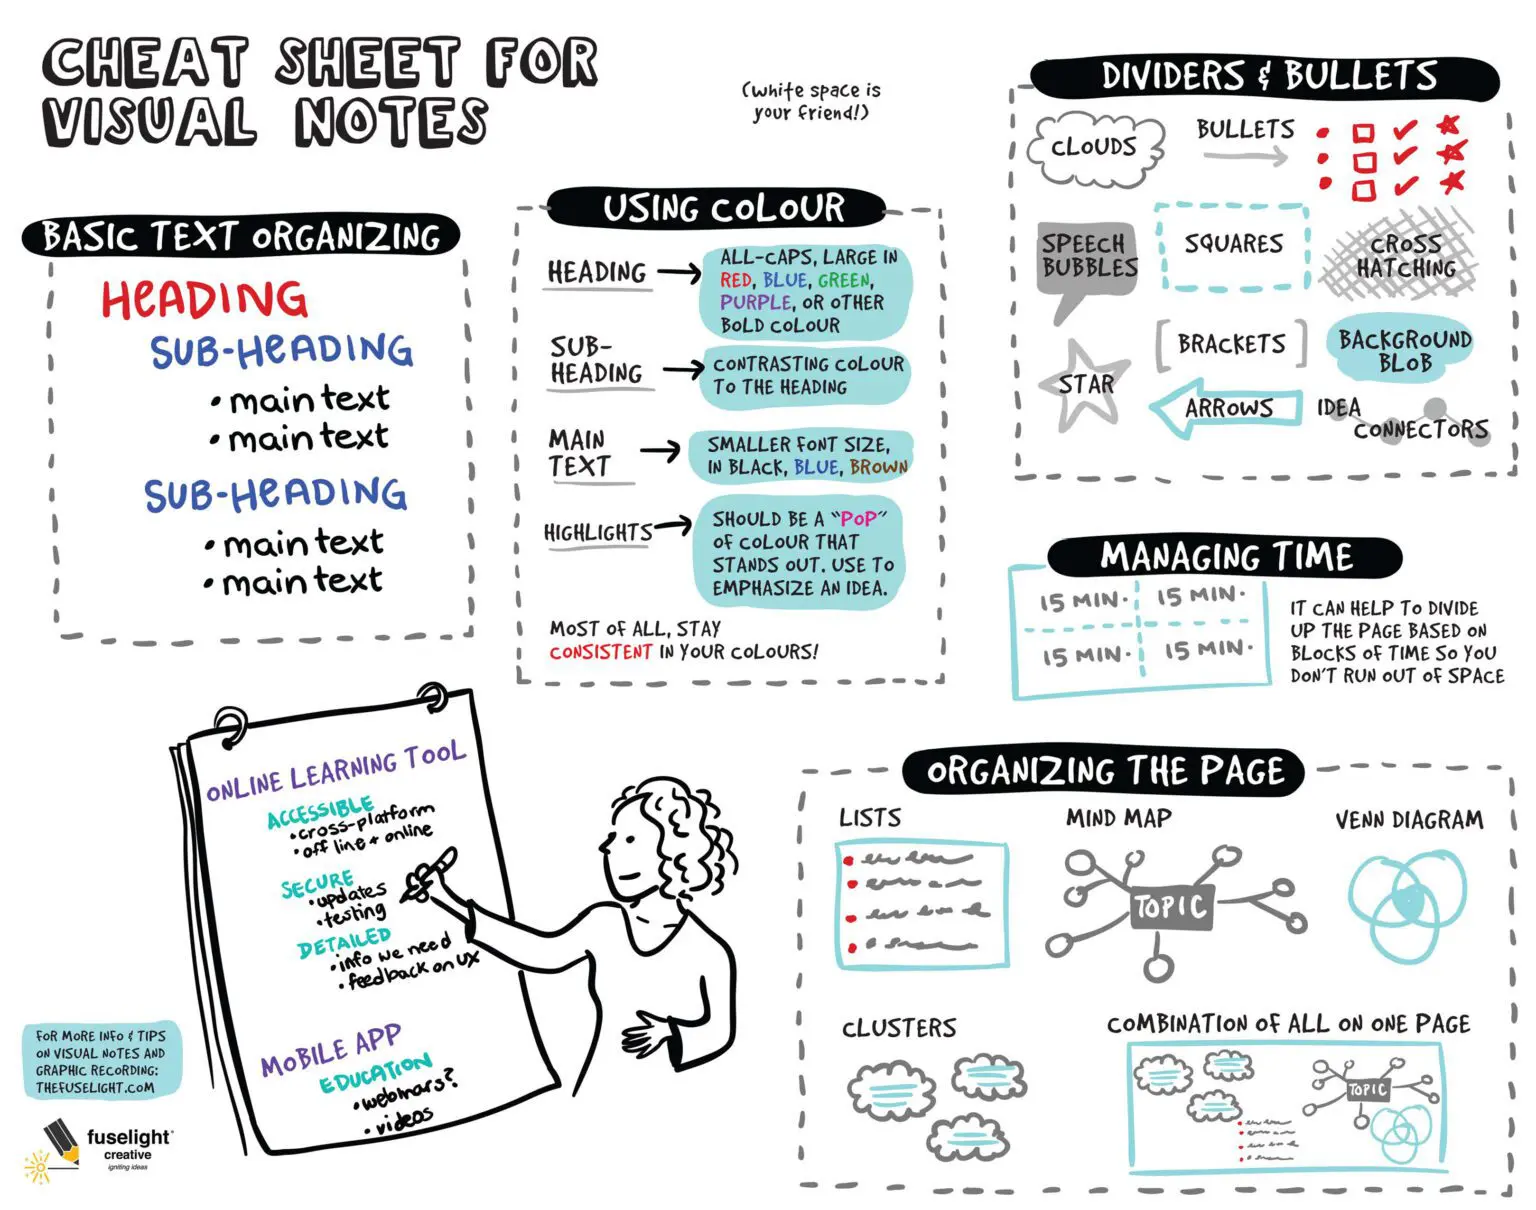 CHEAT SHEET FOR
VISUAL NOTES
(white space is
your friend!)
BASIC TEXT ORGANIZING
HEADING
SUB-HEADING
• main text
• main text
SUB-HEADING
• main text
• main text
USING COLOUR
HEADING
ALL-CAPS, LARGE IN
RED, BLUE, GREEN,
PURPLE, OR OTHER
BOLD COLOUR
SUB-
HEADING
CONTRASTING COLOUR
TO THE HEADING
MAIN
TEXT
SMALLER FONT SIZE,
IN BLACK, BLUE, BROWN
HIGHLIGHTS
SHOULD BE A "POP"
OF COLOUR THAT
STANDS OUT. USE TO
EMPHASIZE AN IDEA.
MOST OF ALL, STAY
CONSISTENT IN YOUR COLOURS!
DIVIDERS & BULLETS
CLOUDS
BULLETS
SPEECH
BUBBLES
SQUARES
CROSS
HATCHING
STAR
[BRACKETS]
BACKGROUND
BLOB
ARROWS
IDEA
CONNECTORS
MANAGING TIME
15 MIN.
15 MIN.
15 MIN.
15 MIN.
IT CAN HELP TO DIVIDE
UP THE PAGE BASED ON
BLOCKS OF TIME SO YOU
DON'T RUN OUT OF SPACE
ONLINE LEARNING TOOL
ACCESSIBLE
• cross-platform
• off line + online
SECURE
• updates
• testing
DETAILED
• info we need
• feedback on UX
MOBILE APP
EDUCATION
• webinars?
• videos
ORGANIZING THE PAGE
LISTS
MIND MAP
TOPIC
VENN DIAGRAM
CLUSTERS
COMBINATION OF ALL ON ONE PAGE
TOPIC
FOR MORE INFO & TIPS
ON VISUAL NOTES AND
GRAPHIC RECORDING:
THEFUSELIGHT.COM
fuselight®
creative
igniting ideas